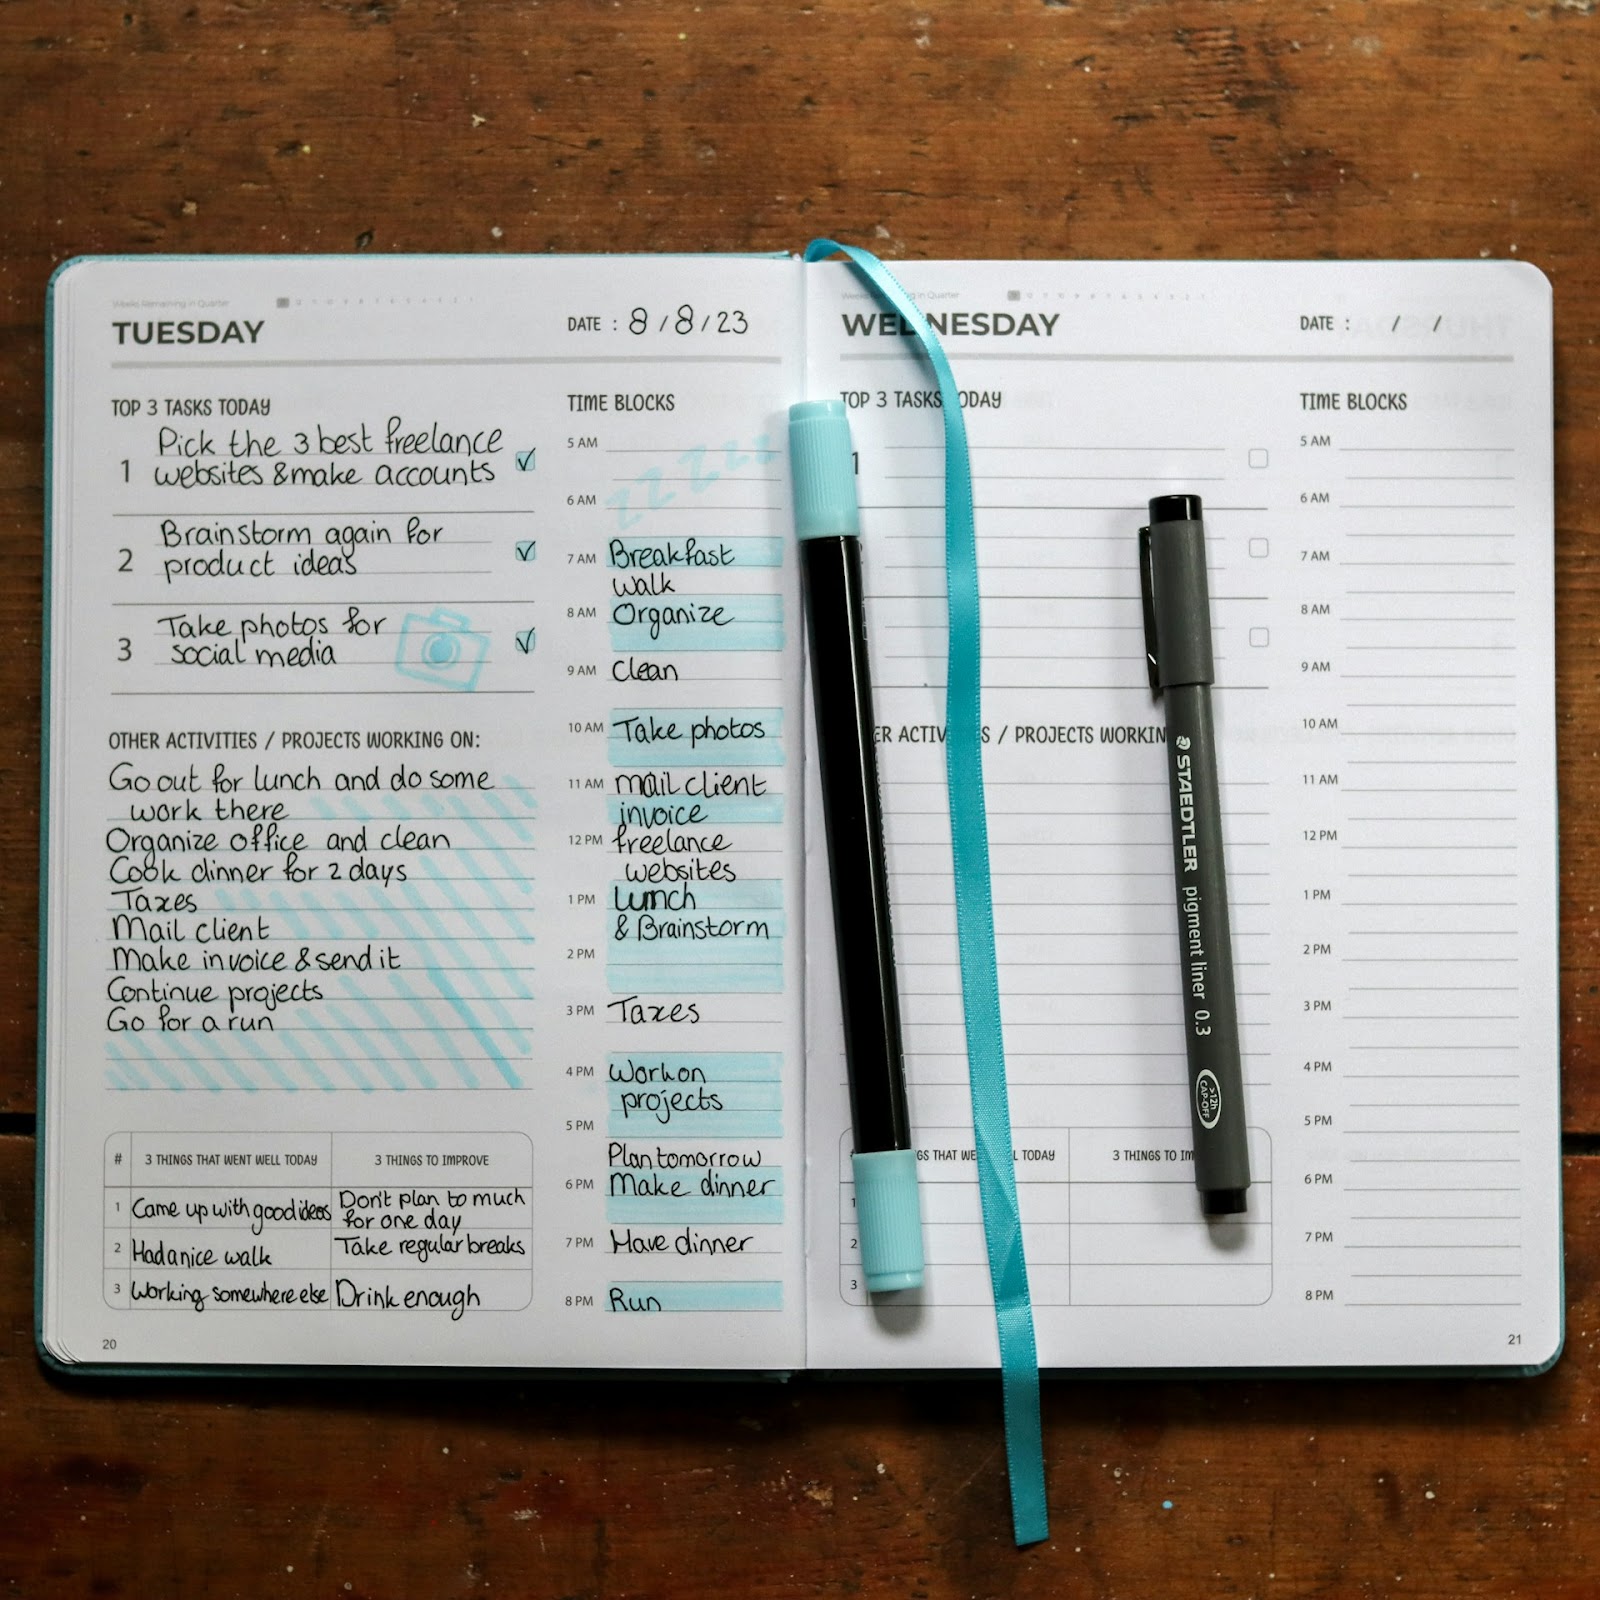 Weeks Remaining in Quarter
TUESDAY
DATE : 8/8/23
TOP 3 TASKS TODAY
1 Pick the 3 best freelance
websites & make accounts
2 Brainstorm again for
product ideas
3 Take photos for
social media
OTHER ACTIVITIES / PROJECTS WORKING ON:
Go out for lunch and do some
work there
Organize office and clean
Cook dinner for 2 days
Taxes
Mail client
Make invoice & send it
Continue projects
Go for a run
# 3 THINGS THAT WENT WELL TODAY 3 THINGS TO IMPROVE
1 Came up with good ideas Don't plan to much
for one day
2 Had a nice walk Take regular breaks
3 Working somewhere else Drink enough
20
TIME BLOCKS
5 AM
zzzzzzz
6 AM
7 AM Breakfast
walk
8 AM Organize
9 AM Clean
10 AM Take photos
11 AM mail client
invoice
12 PM freelance
websites
1 PM Lunch
& Brainstorm
2 PM
3 PM Taxes
4 PM Work on
projects
5 PM
Plan tomorrow
6 PM Make dinner
7 PM Have dinner
8 PM Run
Weeks Remaining in Quarter
WEDNESDAY
DATE : / /
TOP 3 TASKS TODAY
1
ER ACTIV S / PROJECTS WORKIN
GS THAT WE L TODAY 3 THINGS TO IM
1
2
3
TIME BLOCKS
5 AM
6 AM
7 AM
8 AM
9 AM
10 AM
11 AM
12 PM
1 PM
2 PM
3 PM
4 PM
5 PM
6 PM
7 PM
8 PM
21
STAEDTLER pigment liner 0.3
>12h
CAP-OFF